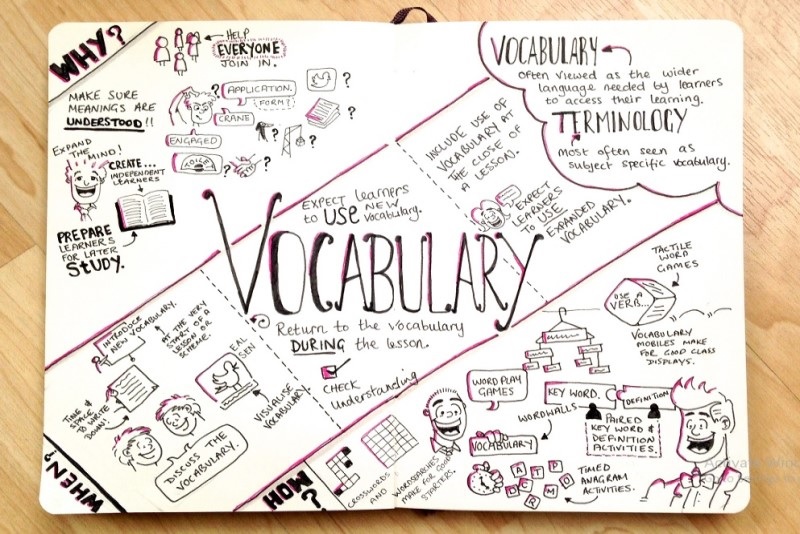 WHY?
HELP
EVERYONE
JOIN IN.
MAKE SURE
MEANINGS ARE
UNDERSTOOD!!
? APPLICATION. ?
FORM?
CRANE
ENGAGED
TOILET
? ? ? ?
EXPAND
THE MIND!
CREATE...
INDEPENDENT
LEARNERS
PREPARE
LEARNERS
FOR LATER
STUDY.
VOCABULARY
Often viewed as the wider
language needed by learners
to access their learning.
TERMINOLOGY
Most often seen as
subject specific vocabulary.
INCLUDE USE OF
VOCABULARY AT
THE CLOSE OF
A LESSON.
EXPECT
LEARNERS
TO USE
EXPANDED
VOCABULARY.
EXPECT learners
to USE NEW
vocabulary.
VOCABULARY
Return to the vocabulary
DURING the lesson.
CHECK
Understanding
INTRODUCE
NEW VOCABULARY.
AT THE VERY
START OF A
LESSON OR
SCHEME.
TIME &
SPACE
TO WRITE
DOWN!
EAL
SEN
VISUALISE
VOCABULARY
DISCUSS THE
VOCABULARY.
WHEN?
HOW?
CROSSWORDS
AND
WORDSEARCHES
MAKE FOR GOOD
STARTERS.
TACTILE
WORD
GAMES
USE A
VERB...
VOCABULARY
MOBILES MAKE
FOR GOOD CLASS
DISPLAYS.
WORD PLAY
GAMES
KEY WORD.
DEFINITION
WORDWALLS
VOCABULARY
PAIRED
KEY WORD &
DEFINITION
ACTIVITIES.
A T P
D C R M O
TIMED
ANAGRAM
ACTIVITIES.